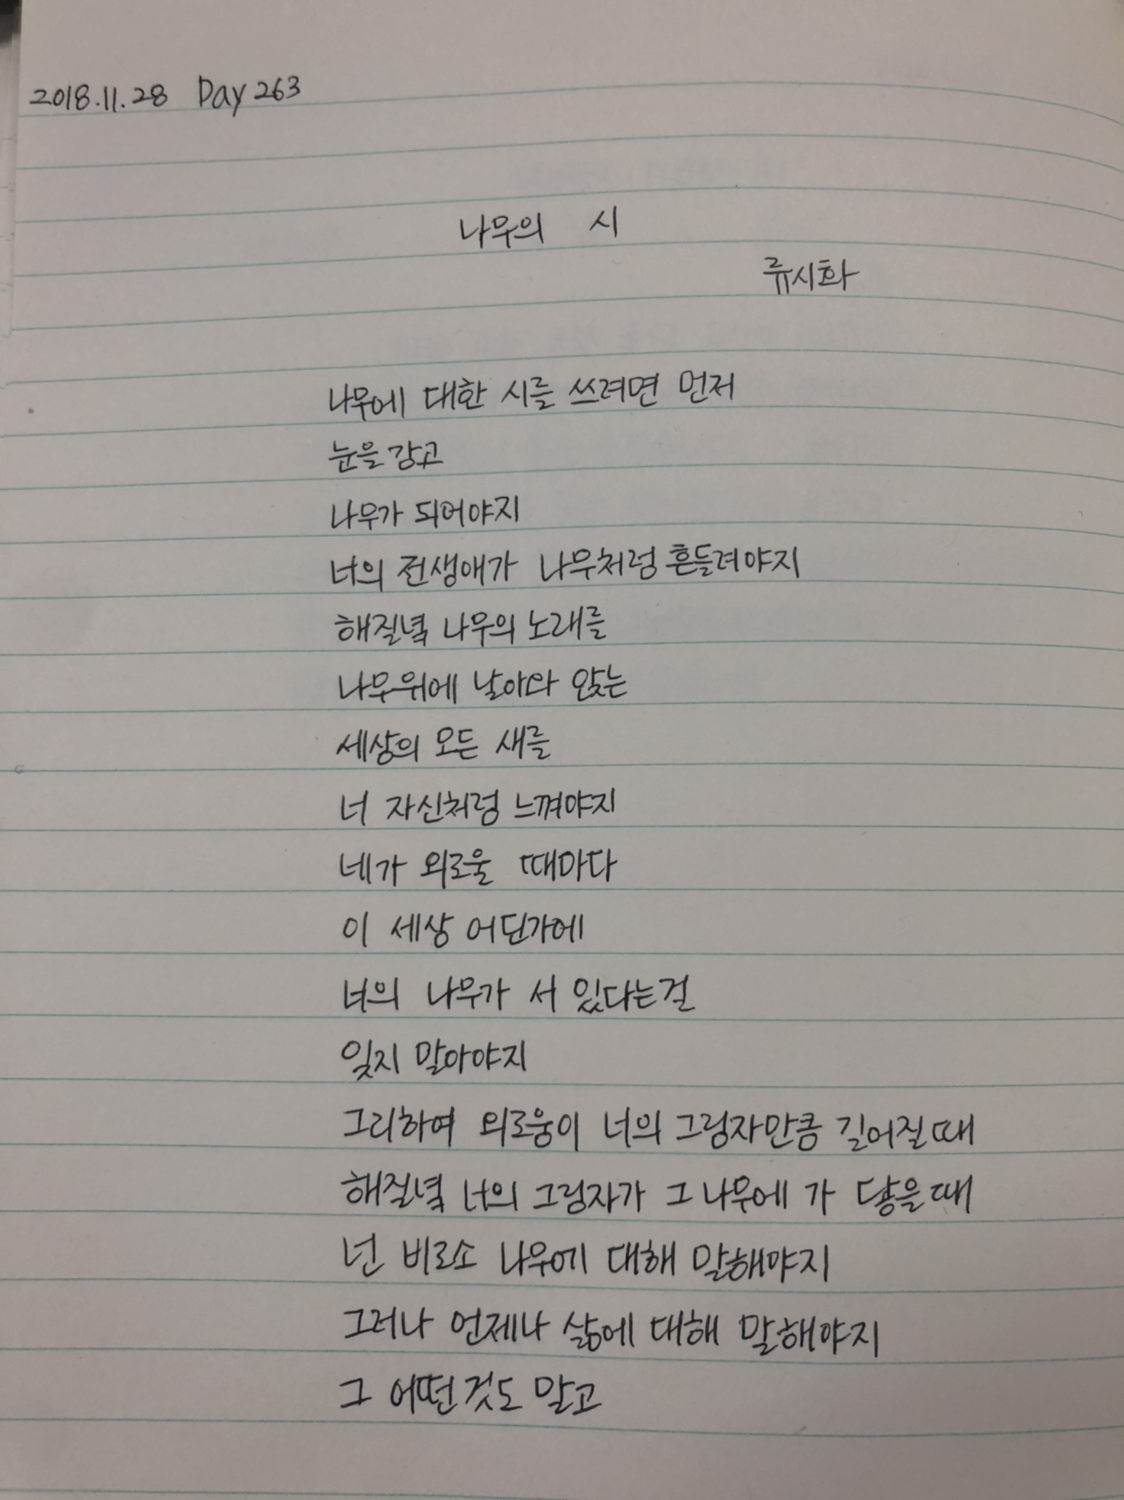 2018.11.28 Day 263
나무의 시
류시화
나무에 대한 시를 쓰려면 먼저
눈을 감고
나무가 되어야지
너의 전생애가 나무처럼 흔들려야지
해질녘 나무의 노래를
나무위에 날아와 앉는
세상의 모든 새를
너 자신처럼 느껴야지
네가 외로울 때마다
이 세상 어딘가에
너의 나무가 서 있다는걸
잊지 말아야지
그리하여 외로움이 너의 그림자만큼 길어질때
해질녘 너의 그림자가 그 나무에 가 닿을때
넌 비로소 나무에 대해 말해야지
그러나 언제나 삶에 대해 말해야지
그 어떤것도 말고